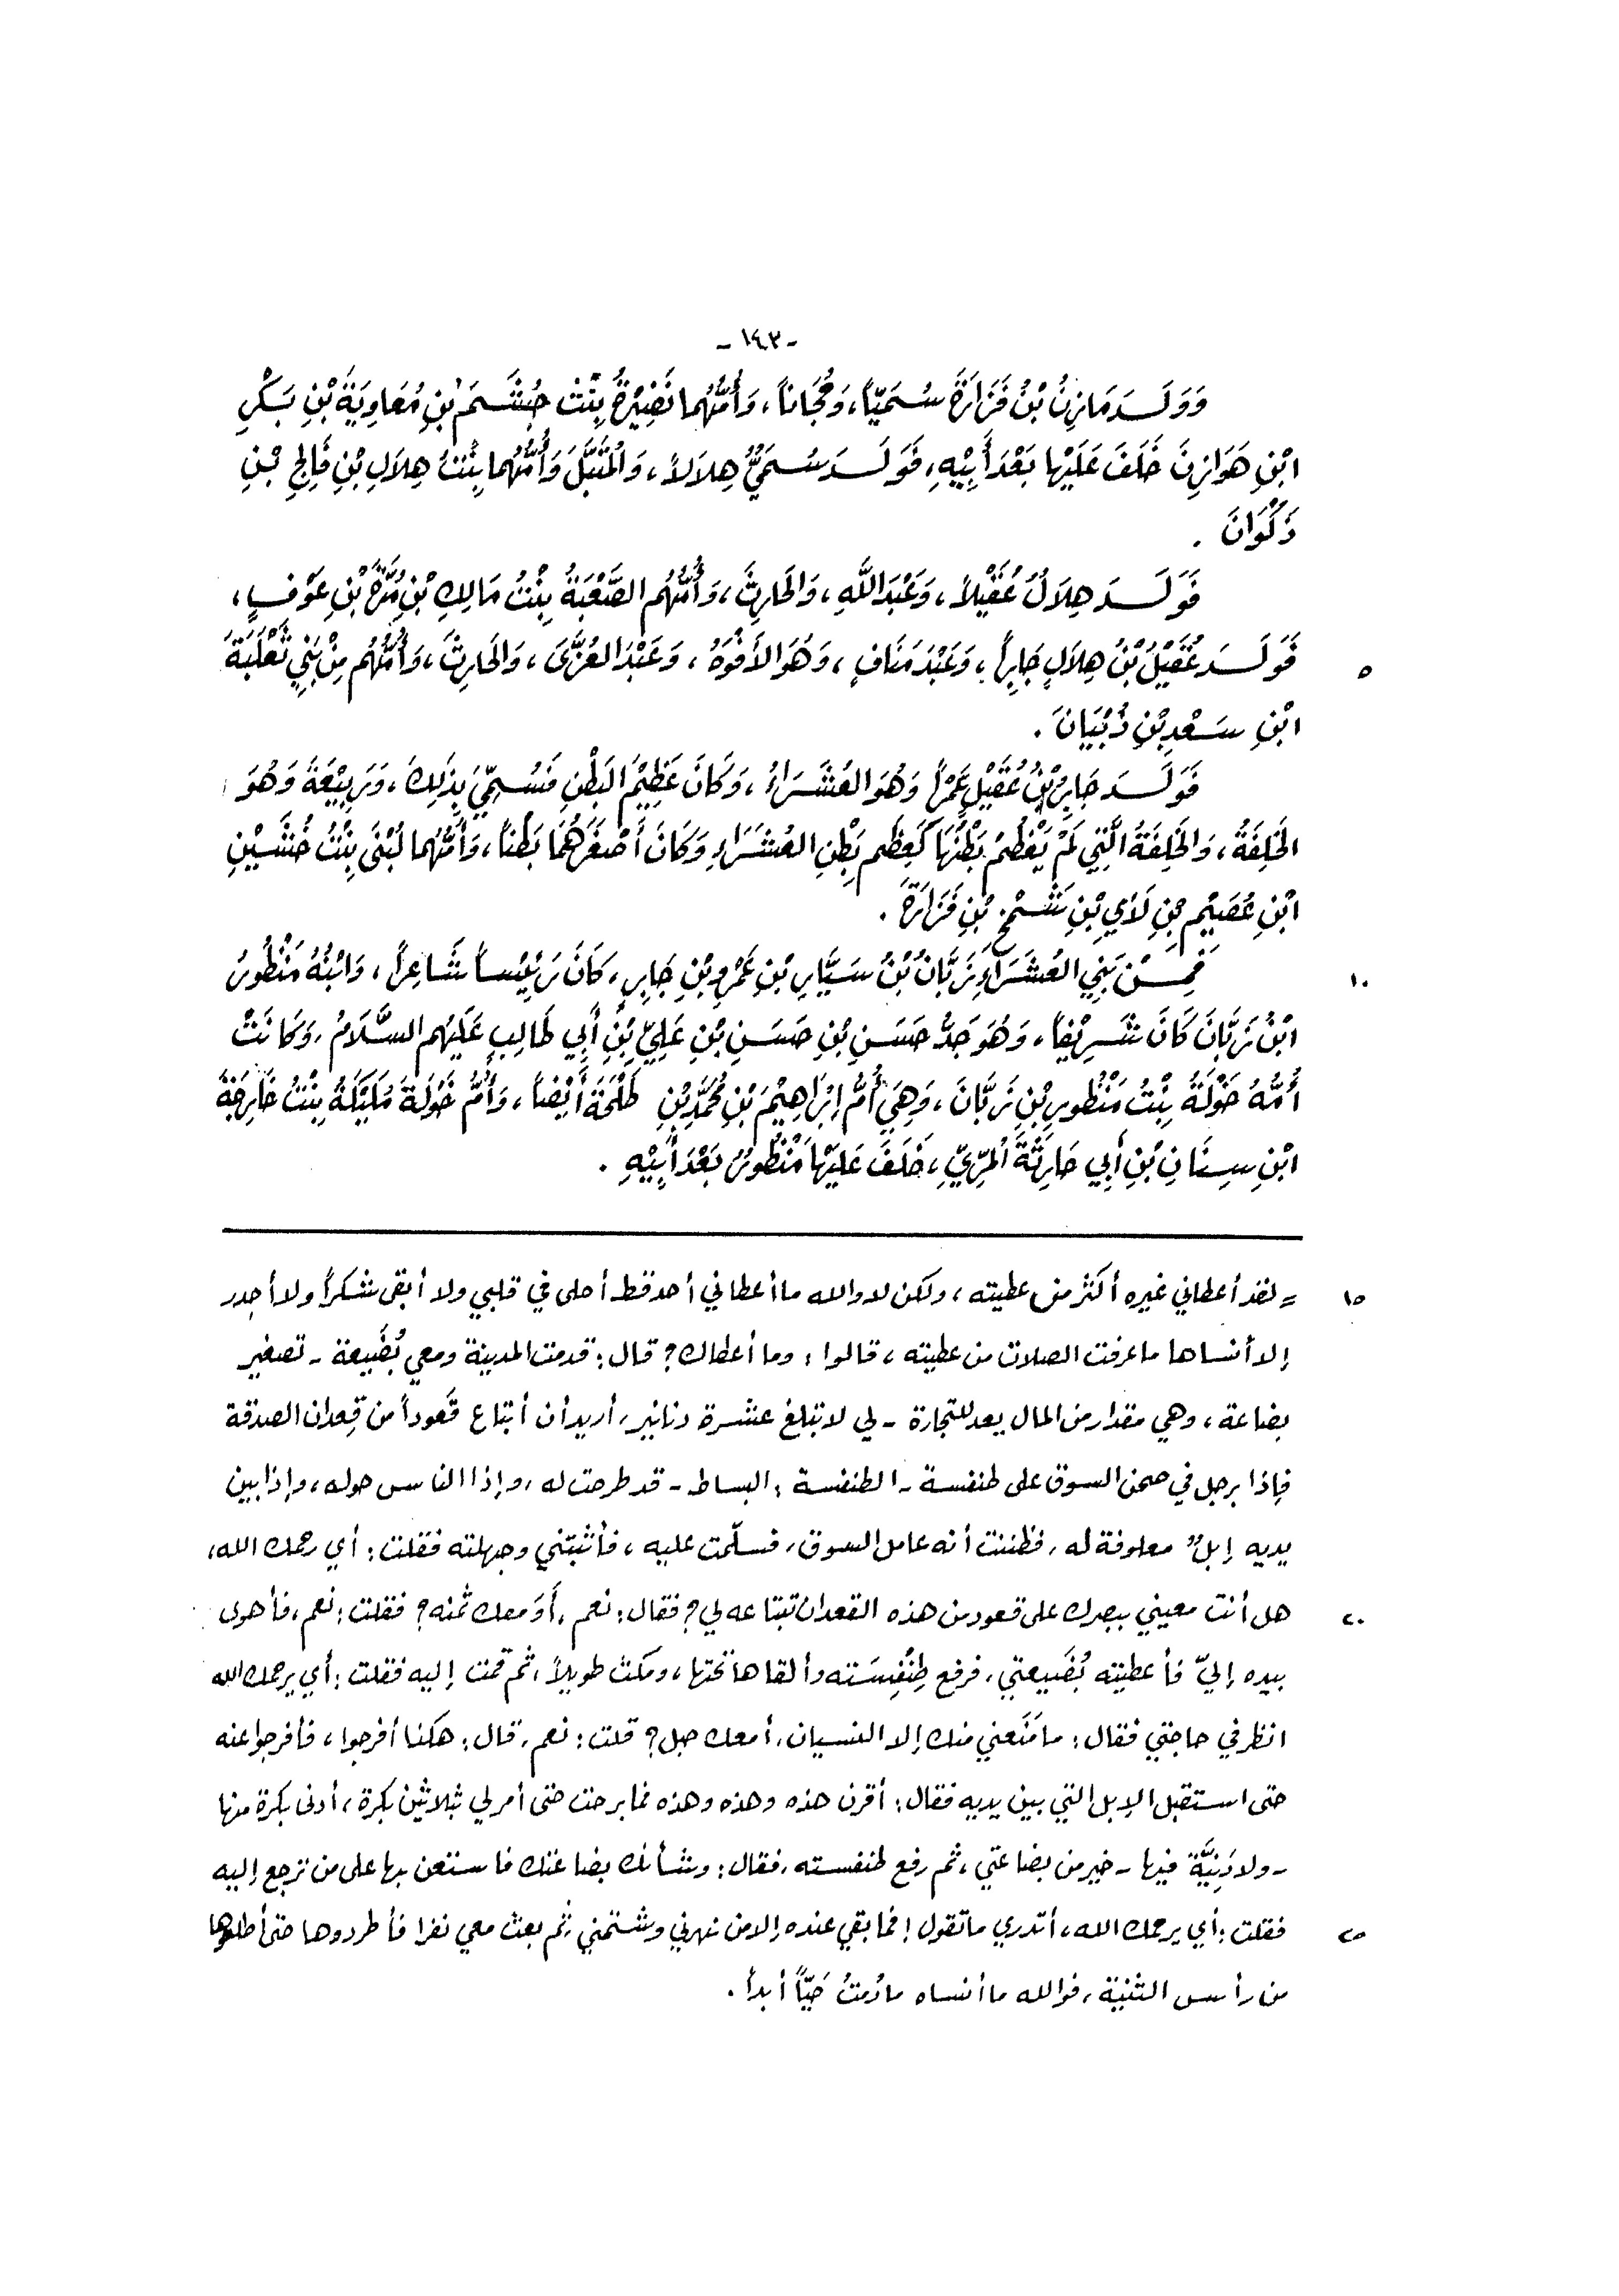 - ١٤٣ -
وَوَلَدَ مَازِنُ بْنُ فَزَارَةَ سُمَيّاً، وَمُجَاناً، وَأُمُّهُما نَضِيْرَةُ بِنْتُ جُشَمَ بْنِ مُعَاوِيَةَ بْنِ بَكْرِ
ابْنِ هَوَازِنَ خَلَفَ عَلَيْها بَعْدَ أَبِيْهِ، فَوَلَدَ سُمَيُّ هِلَالاً، وَالمُتَبَّلَ وَأُمُّهُما بِنْتُ هِلَالِ بْنِ فَالِجِ بْنِ
ذَكْوَانَ .
فَوَلَدَ هِلَالُ عُقَيْلاً، وَعَبْدَ اللَّهِ، وَالحَارِثَ، وَأُمُّهُم الصَّعْبَةُ بِنْتُ مَالِكِ بْنِ مُرَّةَ بْنِ عَوْفٍ،
٥ فَوَلَدَ عُقَيْلُ بْنُ هِلَالٍ جَابِراً، وَعَبْدَ مَنَافٍ، وَهَوَ الأَفْوَهُ، وَعَبْدَ العُزَّىَ، وَالحَارِثَ، وَأُمُّهُم مِنْ بَنِي ثَعْلَبَةَ
ابْنِ سَعْدِ بْنِ ذُبْيَانَ .
فَوَلَدَ جَابِرُ بْنُ عُقَيْلٍ عَمْراً وَهُوَ العُشَرَاءُ، وَكَانَ عَظِيْمَ البَطْنِ فَسُمِّيَ بِذَلِكَ، وَرَبِيْعَةَ وَهُوَ
الخَلِفَةُ، وَالخَلِفَةُ الَّتِي لَمْ يَعْظُمْ بَطْنُهَا كَعِظَمِ بَطْنِ العُشَرَاءِ وَكَانَ أَصْغَرَهُمَا بَطْناً، وَأُمُّهُما لُبْنَى بِنْتُ خُشَيْنِ
ابْنِ عُصَيْمِ بْنِ لَأْيِ بْنِ شَمْخِ بْنِ فَزَارَةَ .
١٠ فَمِنْ بَنِي العُشَرَاءِ زَبَّانُ بْنُ سَيَّارِ بْنِ عَمْرِو بْنِ جَابِرٍ، كَانَ رَئِيْساً شَاعِراً، وَابْنُهُ مَنْظُورُ
ابْنُ زَبَّانَ كَانَ شَرِيْفاً، وَهُوَ جَدُّ حَسَنِ بْنِ حَسَنِ بْنِ عَلِيِّ بْنِ أَبِي طَالِبٍ عَلَيْهِم السَّلَامُ، وَكَانَتْ
أُمُّهُ خَوْلَةُ بِنْتُ مَنْظُورِ بْنِ زَبَّانَ، وَهِيَ أُمُّ إِبْرَاهِيْمَ بْنِ مُحَمَّدِ بْنِ طَلْحَةَ أَيْضاً، وَأُمُّ خَوْلَةَ مُلَيْكَةُ بِنْتُ خَارِجَةَ
ابْنِ سِنَانِ بْنِ أَبِي حَارِثَةَ المُرِّيِّ، خَلَفَ عَلَيْهَا مَنْظُورُ بَعْدَ أَبِيْهِ .
١٥ = لقد أعطاني غيره أكثر من عطيته، ولكن لا والله ما أعطاني أحد قط أحلى في قلبي ولا أبقى شكراً ولا أجدر
إلا أنساها ما عرفت الصلات من عطيته، قالوا: وما أعطاك؟ قال: قدمت المدينة ومعي بُضَيعة - تصغير
بضاعة، وهي مقدار من المال يعد للتجارة - لي لا تبلغ عشرة دنانير، أريد أن أبتاع قَعوداً من قِعدان الصدقة
فإذا برجل في صحن السوق على طنفسة - الطنفسة: البساط - قد طرحت له، وإذا الناس حوله، وإذا بين
يديه إبلٌ معلوفة له، فظننت أنه عامل السوق، فسلّمت عليه، فأثبتني وجهلته فقلت: أي رحمك الله،
٢٠ هل أنت معيني ببصرك على قعود من هذه القعدان تبتاعه لي؟ فقال: نعم، أَوَ معك ثمنه؟ فقلت: نعم، فأهوى
بيده إليّ فأعطيته بُضَيعتي، فرفع طِنْفِسَته وألقاها تحتها، ومكث طويلاً، ثم قمت إليه فقلت: أي يرحمك الله
انظر في حاجتي فقال: ما مَنَعني منك إلا النسيان، أمعك حبل؟ قلت: نعم، قال: هكذا أفرجوا، فأفرجوا عنه
حتى استقبل الإبل التي بين يديه فقال: أقرن هذه وهذه وهذه فما برحت حتى أمر لي بثلاثين بكرة، أدنى بكرة منها
- ولا دَنِيَّة فيها - خير من بضاعتي، ثم رفع طنفسته، فقال: وشأنك بضاعتك فاستعن بها على من ترجع إليه
٢٥ فقلت: أي يرحمك الله، أتدري ما تقول! فما بقي عنده إلا من نهرني وشتمني ثم بعث معي نفرا فأطردوها حتى أطلعوها
من رأس الثنية، فوالله ما أنساه ما دُمتُ حَيّاً أبداً .